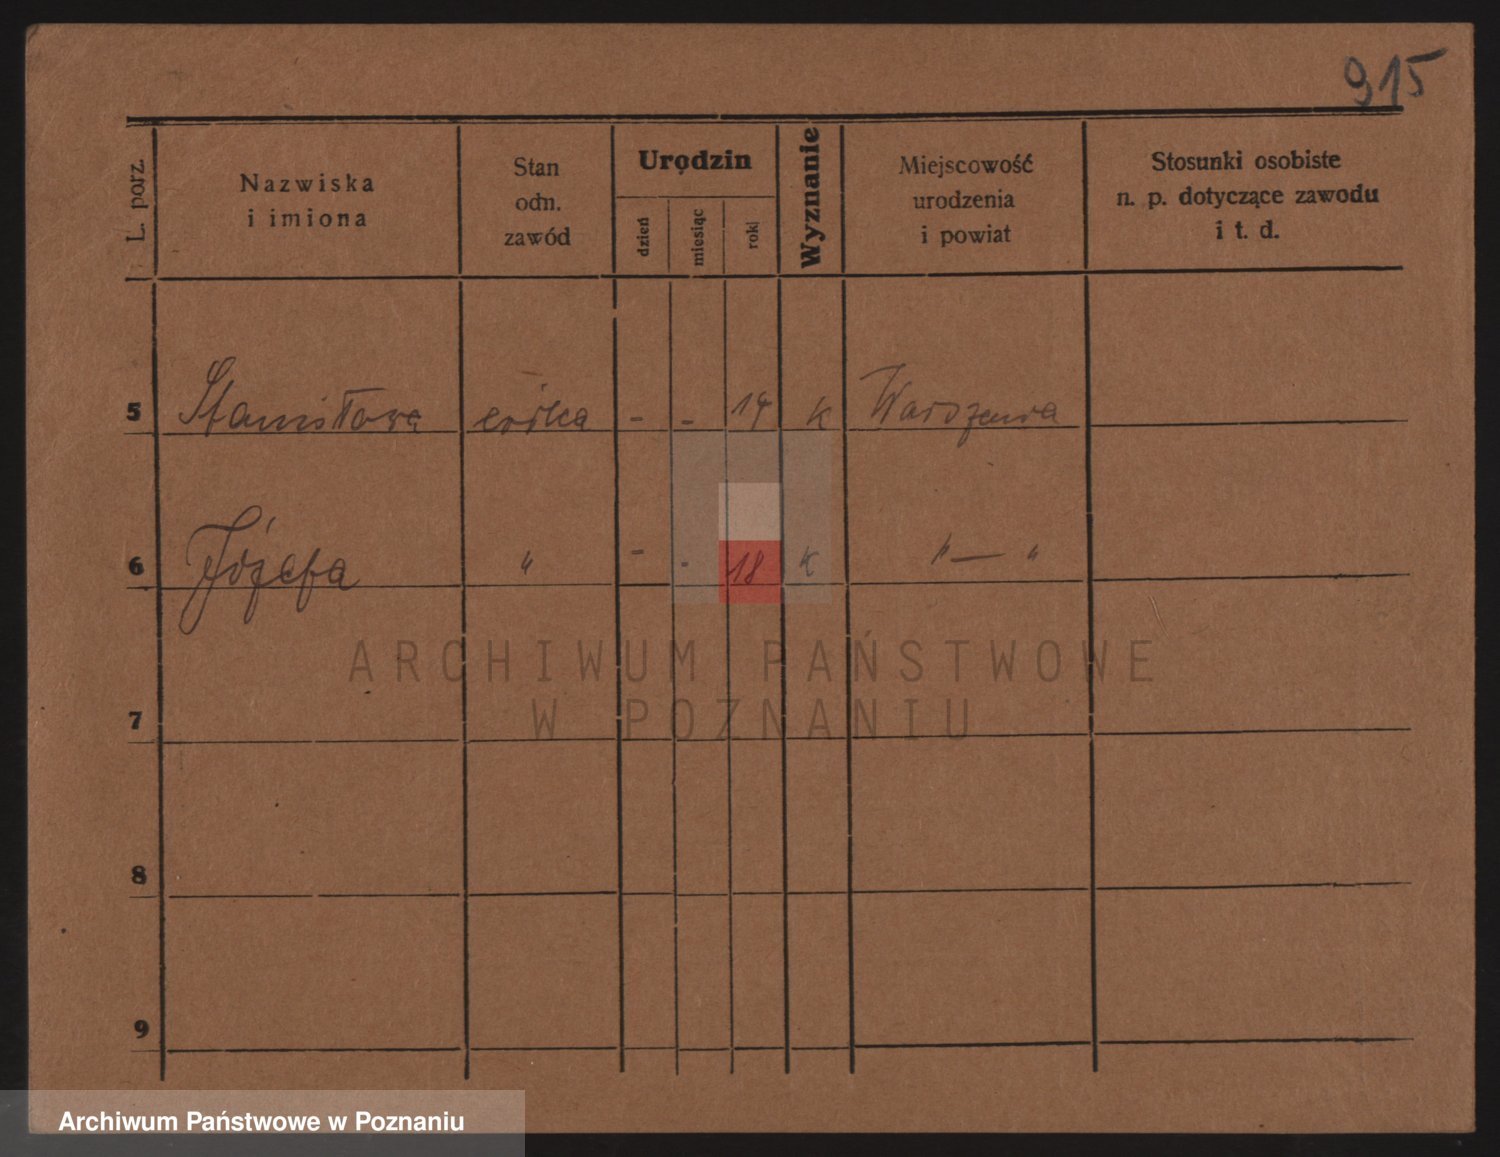 915
L. porz.
Nazwiska
i imiona
Stan
odn.
zawód
Urodzin
dzień
miesiąc
rok
Wyznanie
Miejscowość
urodzenia
i powiat
Stosunki osobiste
n. p. dotyczące zawodu
i t. d.
5 Stanisława córka - - 14 k Warszawa
6 Józefa " - - 18 k " — "
7
8
9
ARCHIWUM PAŃSTWOWE
W POZNANIU
Archiwum Państwowe w Poznaniu